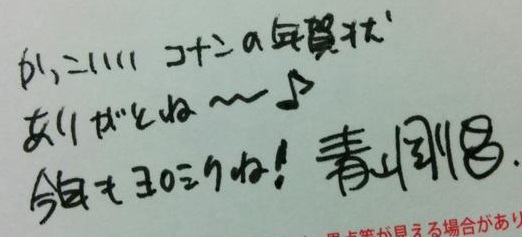 かっこいいい コナンの年賀状
ありがとね〜♪
今年も ヨロシクね! 青山剛昌.
点等が見える場合があり